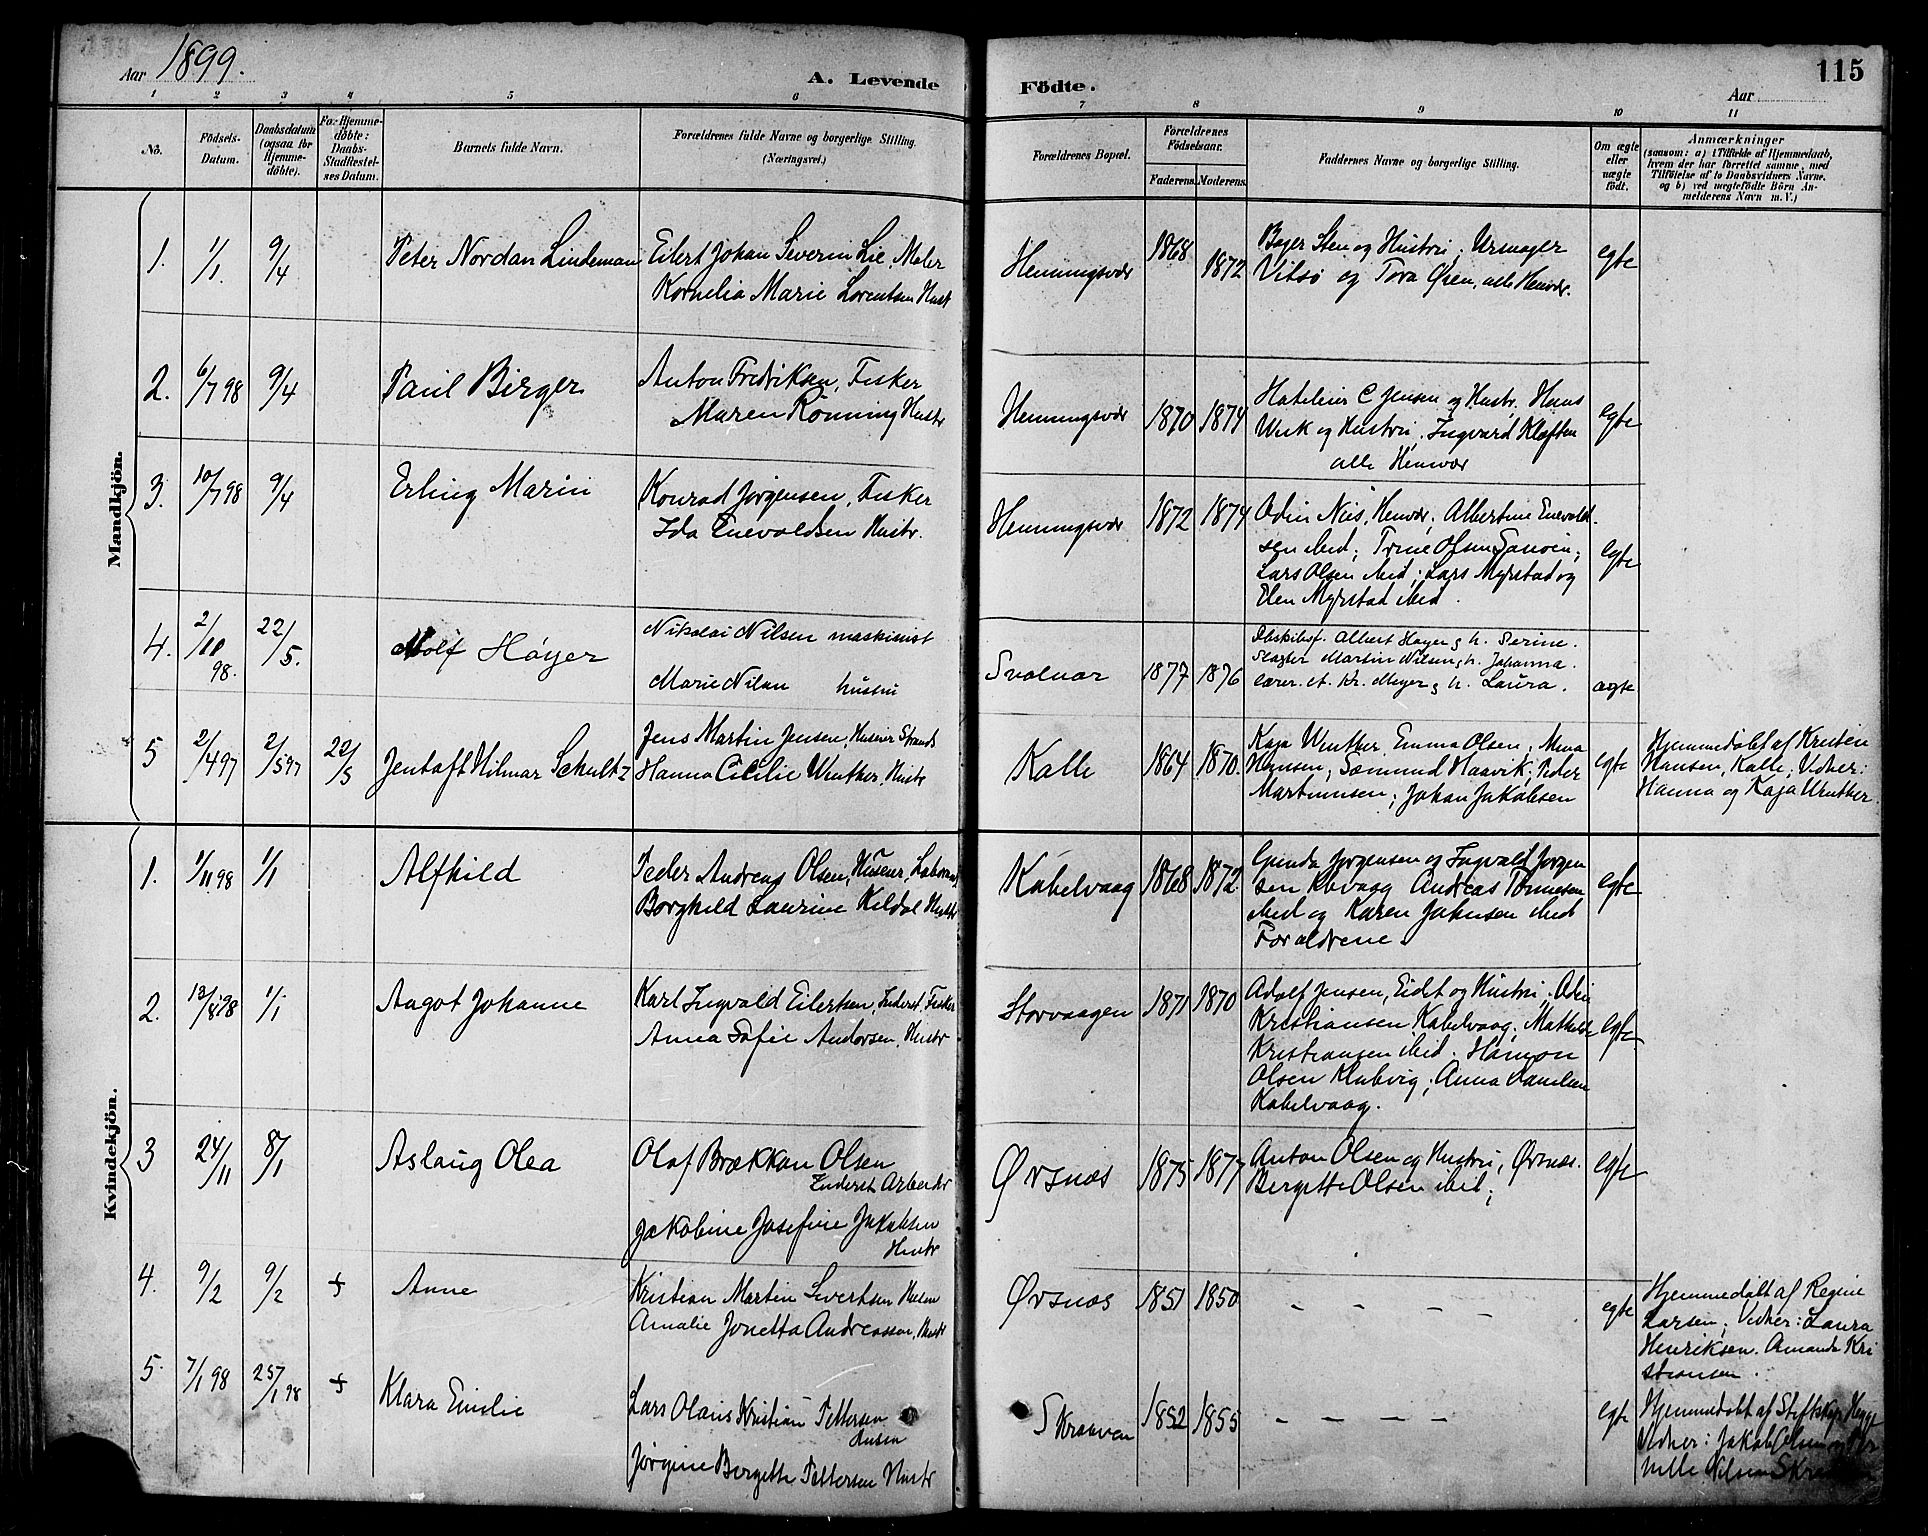 Aar 1899.
A. Levende Födte.
Aar
115
1 2 3 4 5 6 7 8 9 10 11
No.
Födsels-Datum.
Daabsdatum (ogsaa for Hjemmedöbte).
For Hjemmedöbte: Daabs-Stadfæstelses Datum.
Barnets fulde Navn.
Forældrenes fulde Navne og borgerlige Stilling. (Næringsvei.)
Forældrenes Bopæl.
Forældrenes Födselsaar.
Faderens. Moderens.
Faddernes Navne og borgerlige Stilling.
Om ægte eller uægte födt.
Anmærkninger
(saasom: a) i Tilfælde af Hjemmedaab,
hvem der har forrettet samme, med
Tilföielse af to Daabsvidners Navne.
og b) ved uægtefödte Börn An-
melderens Navn m. V.)
Mandkjön.
1. 1/1. 9/4 Peter Nordan Lindeman
Eilert Johan Severin Lie, Maler
Kornelia Marie Lorentsen Hust
Henningsvær 1868 1872
Bager Sten og Hustru; Urmager
Vilsø og Tora Olsen, alle Henvær.
egte
2. 6/7 98 9/4 Paul Birger
Anton Fredriksen, Fisker
Maren Rönning Hustr
Henningsvær 1870 1874
C Jensen og Hustr. Hans
og Hustru, Ingvard Kloften
alle Henvær
egte
3. 10/7 98 9/4 Erling Marin
Konrad Jørgensen, Fisker
Ida Enevoldsen Hustr.
Henningsvær 1872 1874
Odin Nils, Henvær; Albertine Enevold-
sen ibid; Trine Olsen
Lars Olsen ibid; Lars Myrstad og
Elen Myrstad ibid.
egte
4. 2/10 98. 22/5. Rolf Høyer
Nikolai Nilsen maskinist
Marie Nilsen hustru
Svolvær 1877 1876
Albert Høyer g h. Serine.
Slagter Martin Nilsen g h. Johanna.
lærer A. Kr. Meyer g h. Laura.
ægte
5 2/4 97 2/5 97 22/5 Jentoft Hilmar Schultz
Jens Martin Jensen, Huseier
Hanna Cicilie Winther, Hustr
Kalle 1864 1870.
Kaja Winther, Emma Olsen; Mina
Hansen; Sæmund Haavik; Peder
Martinusen; Johan Jakobsen
egte
Hjemmedøbt af Kristen
Hansen, Kalle; Vidner:
Hanna og Kaja Winther.
Kvindekjön.
1. 1/11 98 1/1 Alfhild
Peder Andreas Olsen, Huseier,
Borghild Laurine Kildal Hustr
Kabelvaag 1868 1872
Gunda Jørgensen og Ingvald Jørgen
sen Kbvaag Andreas Tønnesen
ibid og Karen Johnsen ibid
Forældrene.
egte
2. 13/8 98 1/1 Aagot Johanne
Karl Ingvald Eilertsen, Inderst. Fisker
Anna Sofie Andersen, Hustr
Storvaagen 1871 1870
Adolf Jensen, Eidet og Hustru, Odin
Kristiansen Kabelvaag; Mathilde
Kristiansen ibid.
Olsen; Anna Danielsen
Kabelvaag.
egte
3 24/11 8/1 Aslaug Olea
Olaf Brækkan Olsen
Inderst Arbeider
Jakobine Josefine Jakobsen
Hustr
Ørsnæs 1875 1877
Anton Olsen og Hustru, Ørsnæs.
Bergitte Olsen ibid;
egte
4. 9/2 9/2 + Anne
Kristian Martin Sivertsen Huseier
Amalie Jonetta Andreassen, Hustr
Ørsnæs 1851 1850
- - - - -
egte
Hjemmedøbt af Regine
Larsen; Vidner: Laura
Henriksen. Amanda Kri
stiansen.
5. 7/1 98 25/1 98 + Klara Emilie
Lars Olaus Kristian Pettersen
Huseier
Jørgine Bergitte Pettersen Hustr
Skraaven 1852 1855
- - - - -
egte
Hjemmedøbt af
Vidner: Jakob Olsen og Per
nille Nilsen